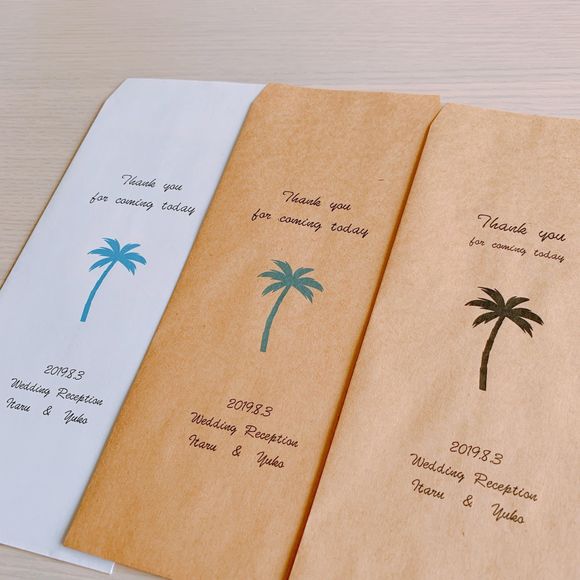 Thank you
for coming today
2019.8.3
Wedding Reception
Itaru & Yuko
Thank you
for coming today
2019.8.3
Wedding Reception
Itaru & Yuko
Thank you
for coming today
2019.8.3
Wedding Reception
Itaru & Yuko